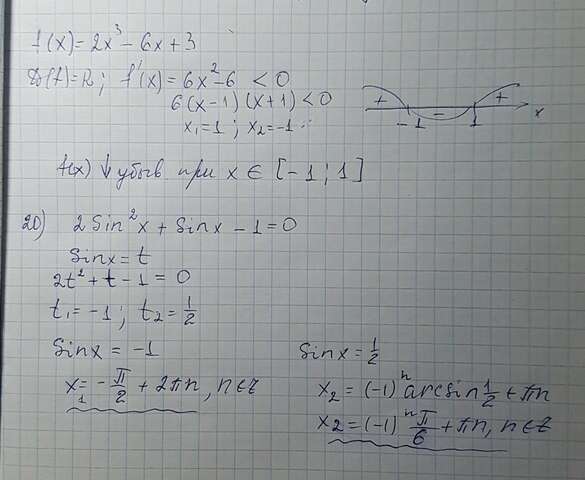 f(x) = 2x³ - 6x + 3
D(f) = R; f'(x) = 6x² - 6 < 0
6(x - 1)(x + 1) < 0
x₁ = 1; x₂ = -1
+ - + x
-1 1
f(x) ↓ убыв при x ∈ [-1; 1]
20) 2 Sin²x + Sinx - 1 = 0
Sinx = t
2t² + t - 1 = 0
t₁ = -1; t₂ = 1/2
Sinx = -1
x₁ = -π/2 + 2πn, n∈z
Sinx = 1/2
x₂ = (-1)ⁿ arcsin 1/2 + πn
x₂ = (-1)ⁿ π/6 + πn, n∈z